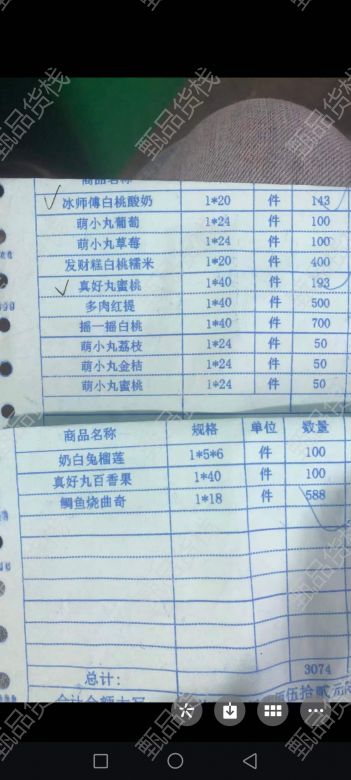 商品名称
冰师傅白桃酸奶 1*20 件 143
萌小丸葡萄 1*24 件 100
萌小丸草莓 1*24 件 100
发财糕白桃糯米 1*20 件 400
真好丸蜜桃 1*40 件 193
多肉红提 1*40 件 500
摇一摇白桃 1*40 件 700
萌小丸荔枝 1*24 件 50
萌小丸金桔 1*24 件 50
萌小丸蜜桃 1*24 件 50
商品名称 规格 单位 数量
奶白兔榴莲 1*5*6 件 100
真好丸百香果 1*40 件 100
鲷鱼烧曲奇 1*18 件 588
总计: 3074
合计金额大写 佰伍拾贰元
甄品货栈